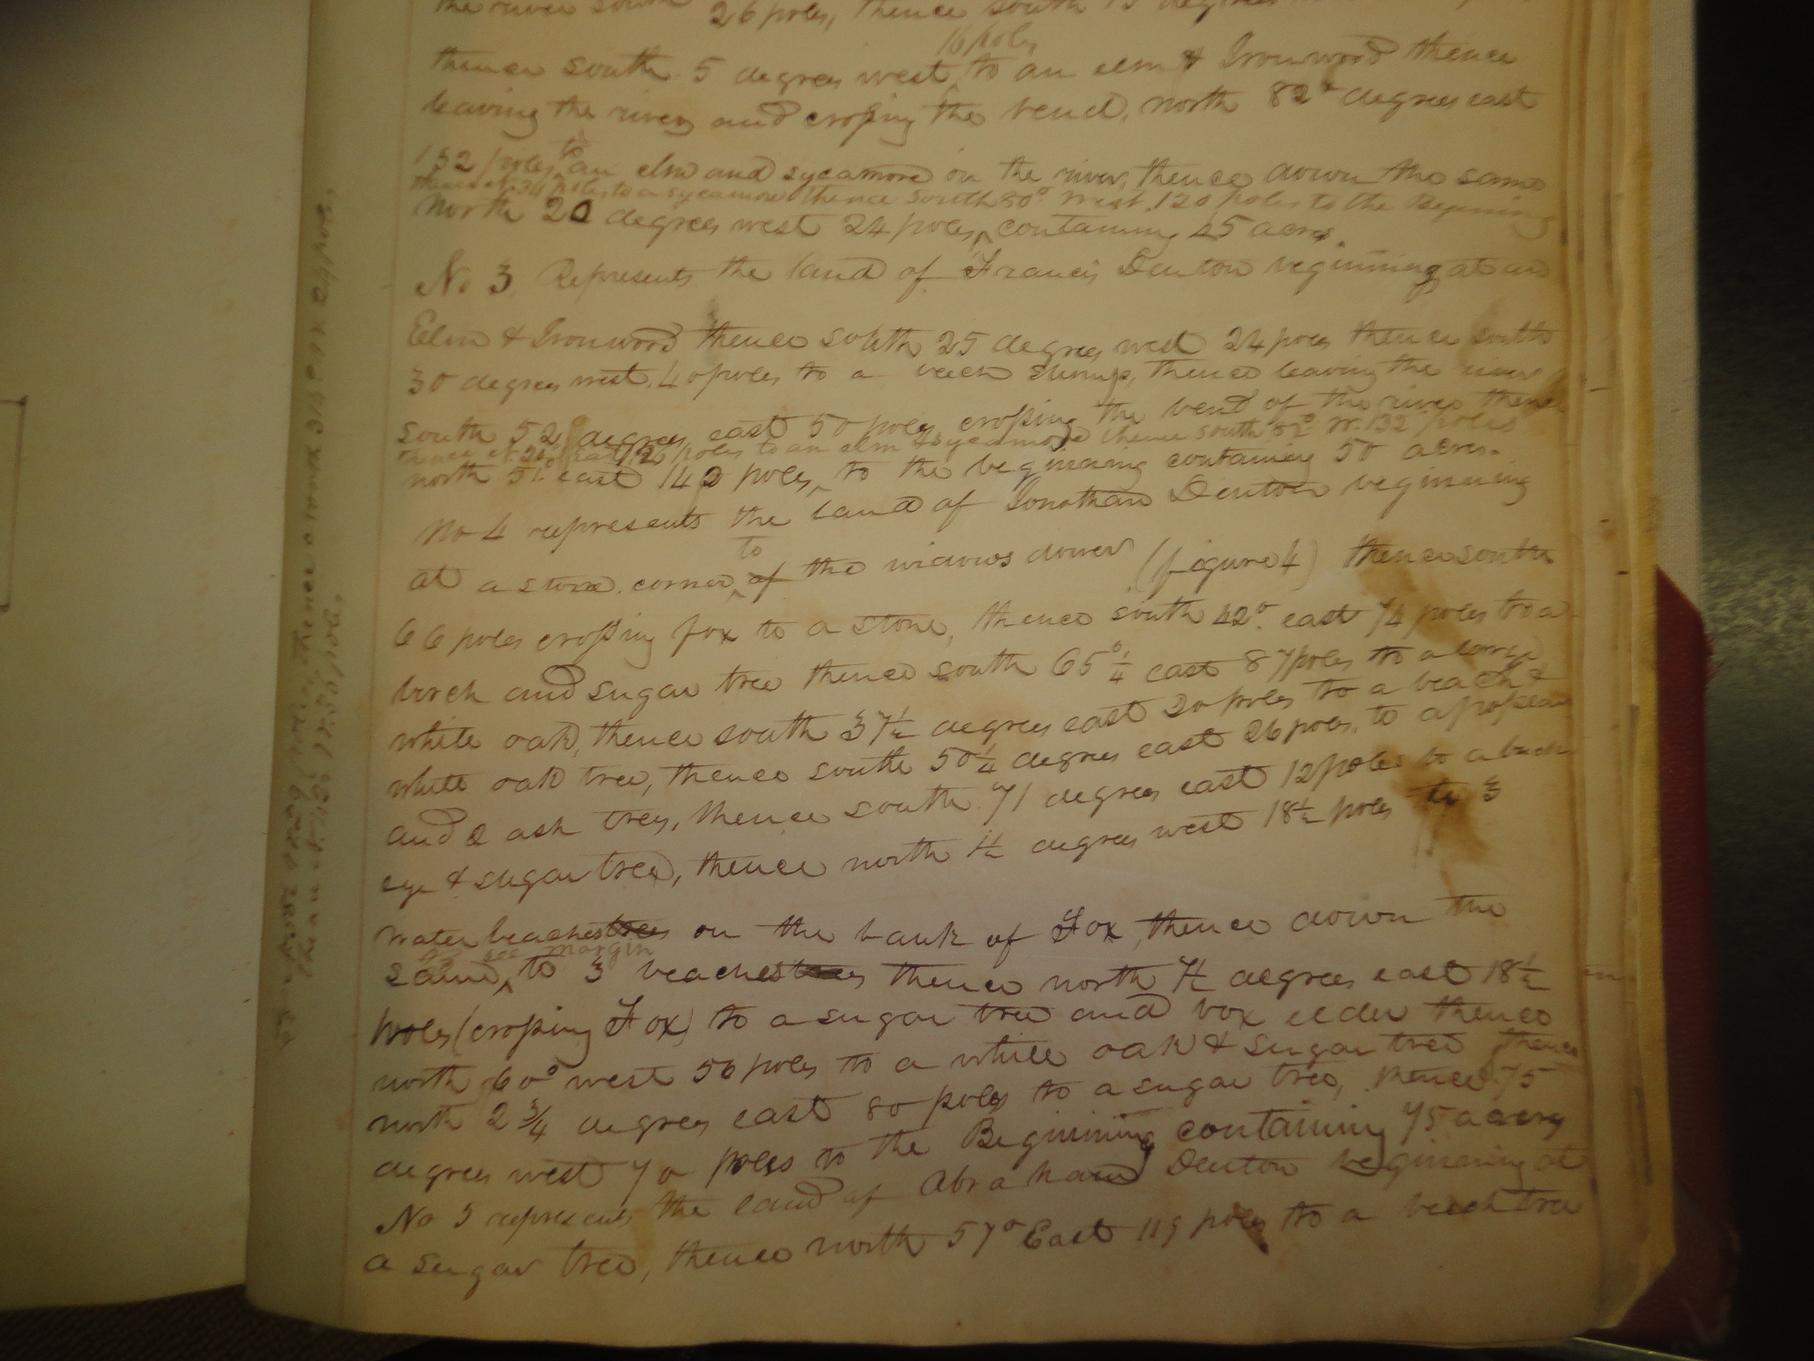 the river south 26 poles, thence south 15 degrees
16 poles
thence south 5 degrees west, to an elm & Ironwood thence
leaving the river and crossing the bend, north 82° degrees east
152 poles to an elm and sycamore on the river, thence down the same
thence N. 34 poles to a sycamore thence South 80° West 120 poles to the Beginning
North 20 degrees west 24 poles, containing 45 acres.
No 3 Represents the land of Francis Denton beginning at an
Elm & Ironwood thence south 25 degrees west 24 poles thence south
30 degrees west 40 poles to a beech stump, thence leaving the river
south 52 degrees east 50 poles crossing the bend of the river thence
poles to an elm & sycamore thence south 82° W. 132 poles
north 51 east 142 poles, to the beginning containing 50 acres.
No 4 represents the land of Jonathan Denton beginning
at a stone corner of to the widows dower (figure 4) thence south
66 poles crossing fox to a stone, thence south 42° east 74 poles to a
birch and sugar tree thence south 65°¼ east 87 poles to a large
white oak, thence south 37½ degrees east 20 poles to a beach &
white oak tree, thence south 50¼ degrees east 26 poles, to a poplar
and 2 ash trees, thence south 71 degrees east 12 poles to a buck
eye & sugar tree, thence north degrees west 18½ poles to 3
water beaches trees on the bank of Fox, thence down the
see margin
same, to 3 beaches trees thence north degrees east 18½
poles (crossing Fox) to a sugar tree and box elder thence
north 60° west 56 poles to a white oak & sugar tree thence
north 2¾ degrees east 80 poles to a sugar tree, thence 75
degrees west 70 poles to the Beginning containing 75 acres
No 5 represents the land of Abraham Denton beginning at
a sugar tree, thence north 57° East 115 poles to a beech tree